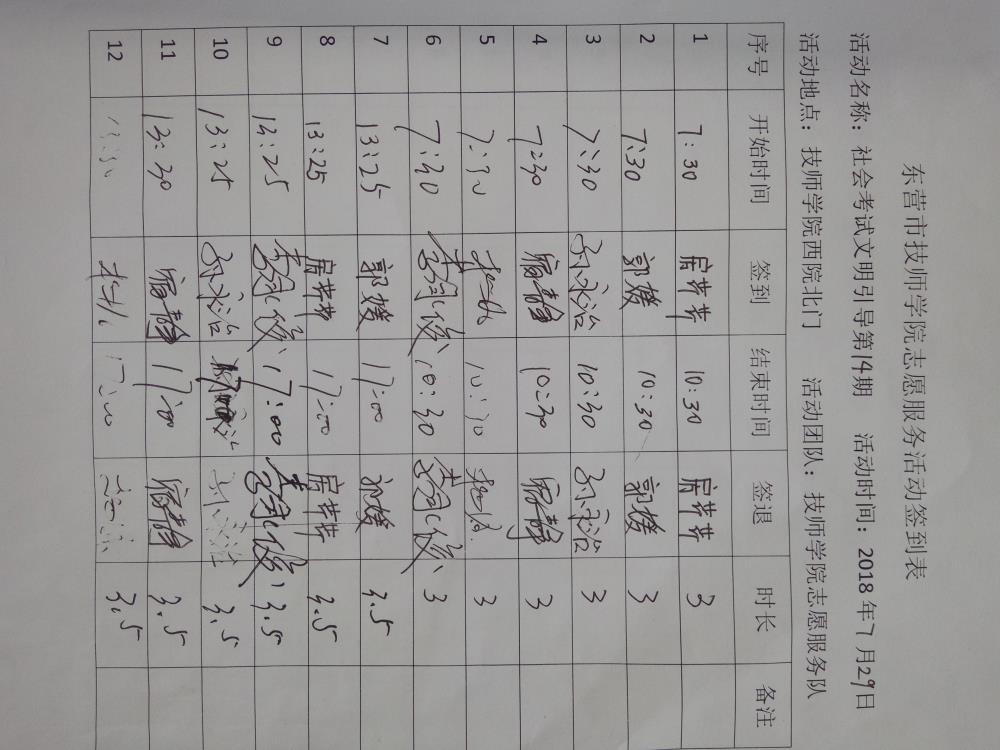 东营市技师学院志愿服务活动签到表
活动名称：社会考试文明引导第14期 活动时间：2018年7月29日
活动地点：技师学院西院北门 活动团队：技师学院志愿服务队
序号 开始时间 签到 结束时间 签退 时长 备注
1 7:30 房苹苹 10:30 房苹苹 3
2 7:30 郭媛 10:30 郭媛 3
3 7:30 10:30 3
4 7:30 宿静 10:30 宿静 3
5 7:30 10:30 3
6 7:30 10:30 3
7 13:25 郭媛 17:00 郭媛 3.5
8 13:25 房苹苹 17:00 房苹苹 3.5
9 13:25 17:00 3.5
10 13:25 3.5
11 13:30 宿静 17:00 宿静 3.5
12 13:30 17:00 3.5